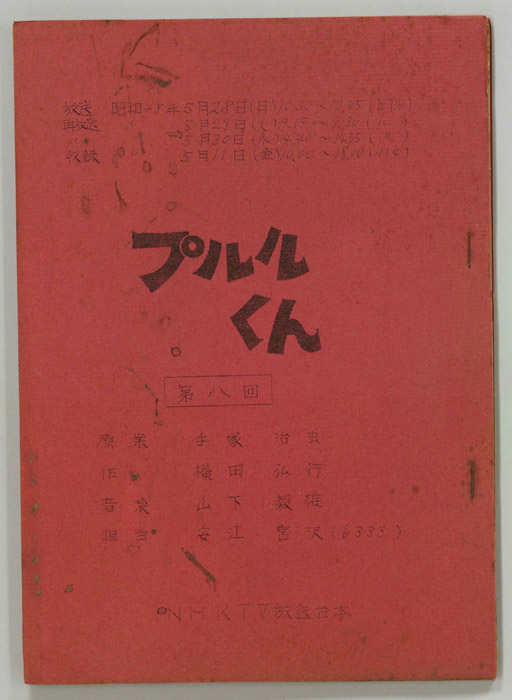 放送 昭和 年5月28日(日)
再放送 5月29日(火)9.15~9.30
5月30日(水)
収録 〃 5月11日(金)10.00~18.00
プルル
くん
第八回
原案 手塚治虫
作 横田弘行
音楽 山下毅雄
担当 安江 宮沢(6333)
NHKTV放送台本